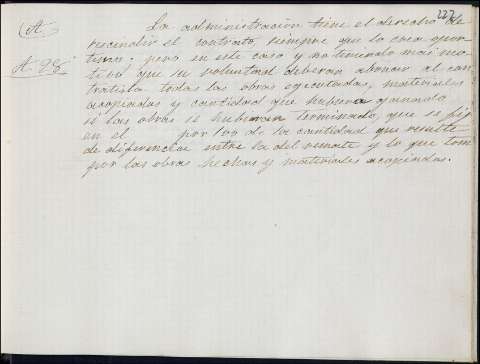 227
(A)
A 28
La administración tiene el derecho de
rescindir el contrato siempre que lo crea opor
tuno; pero en este caso y no teniendo mas mo
tivo que su voluntad deberan abonar al con
tratista todas las obras ejecutadas, materiales
acopiados y cantidad que hubiera ganado
si las obras se hubieran terminado, que se fija
en el por 100 de la cantidad que resulte
de diferencia entre la del remate y lo que
por las obras hechas y materiales acopiados.